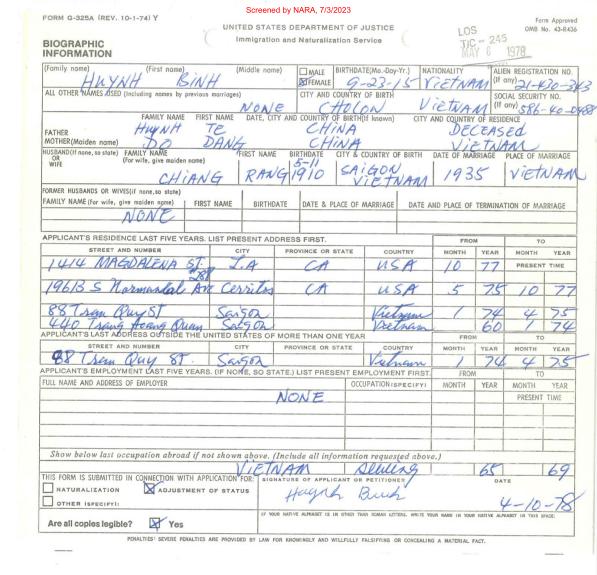 Screened by NARA, 7/3/2023
FORM G-325A (REV. 10-1-74) Y
Form Approved
OMB No. 43-R436
UNITED STATES DEPARTMENT OF JUSTICE
Immigration and Naturalization Service
LOS
TIC - 245
MAY 6 1978
BIOGRAPHIC
INFORMATION
(Family name) (First name) (Middle name) MALE FEMALE BIRTHDATE(Mo.-Day-Yr.) NATIONALITY ALIEN REGISTRATION NO. (If any)
HUYNH BINH 9-23-15 VIETNAM 21-430-343
ALL OTHER NAMES USED (Including names by previous marriages) CITY AND COUNTRY OF BIRTH SOCIAL SECURITY NO. (If any)
NONE CHOLON VIETNAM 586-40-0488
FAMILY NAME FIRST NAME DATE, CITY AND COUNTRY OF BIRTH(If known) CITY AND COUNTRY OF RESIDENCE
FATHER HUYNH TE CHINA DECEASED
MOTHER(Maiden name) DO DANG CHINA VIETNAM
HUSBAND(If none, so state) OR WIFE FAMILY NAME (For wife, give maiden name) FIRST NAME BIRTHDATE CITY & COUNTRY OF BIRTH DATE OF MARRIAGE PLACE OF MARRIAGE
CHIANG RANG 5-11 1910 SAIGON VIETNAM 1935 VIETNAM
FORMER HUSBANDS OR WIVES(If none, so state)
FAMILY NAME (For wife, give maiden name) FIRST NAME BIRTHDATE DATE & PLACE OF MARRIAGE DATE AND PLACE OF TERMINATION OF MARRIAGE
NONE
APPLICANT'S RESIDENCE LAST FIVE YEARS. LIST PRESENT ADDRESS FIRST. FROM TO
STREET AND NUMBER CITY PROVINCE OR STATE COUNTRY MONTH YEAR MONTH YEAR
1414 MAGDALENA ST. L.A CA USA 10 77 PRESENT TIME
19613 S Normandal Ave Cerritos CA USA 5 75 10 77
88 Tran Quy ST Saigon Vietnam 1 74 4 75
440 Trang Hoang Quan Saigon Vietnam 60 1 74
APPLICANT'S LAST ADDRESS OUTSIDE THE UNITED STATES OF MORE THAN ONE YEAR FROM TO
STREET AND NUMBER CITY PROVINCE OR STATE COUNTRY MONTH YEAR MONTH YEAR
88 Tran Quy ST. Saigon Vietnam 1 74 4 75
APPLICANT'S EMPLOYMENT LAST FIVE YEARS. (IF NONE, SO STATE.) LIST PRESENT EMPLOYMENT FIRST. FROM TO
FULL NAME AND ADDRESS OF EMPLOYER OCCUPATION (SPECIFY) MONTH YEAR MONTH YEAR
NONE PRESENT TIME
Show below last occupation abroad if not shown above. (Include all information requested above.)
VIETNAM 65 69
THIS FORM IS SUBMITTED IN CONNECTION WITH APPLICATION FOR: SIGNATURE OF APPLICANT OR PETITIONER DATE
NATURALIZATION ADJUSTMENT OF STATUS
OTHER (SPECIFY):
Huynh Binh 4-10-78
Are all copies legible? Yes
IF YOUR NATIVE ALPHABET IS IN OTHER THAN ROMAN LETTERS, WRITE YOUR NAME IN YOUR NATIVE ALPHABET IN THIS SPACE:
PENALTIES: SEVERE PENALTIES ARE PROVIDED BY LAW FOR KNOWINGLY AND WILLFULLY FALSIFYING OR CONCEALING A MATERIAL FACT.